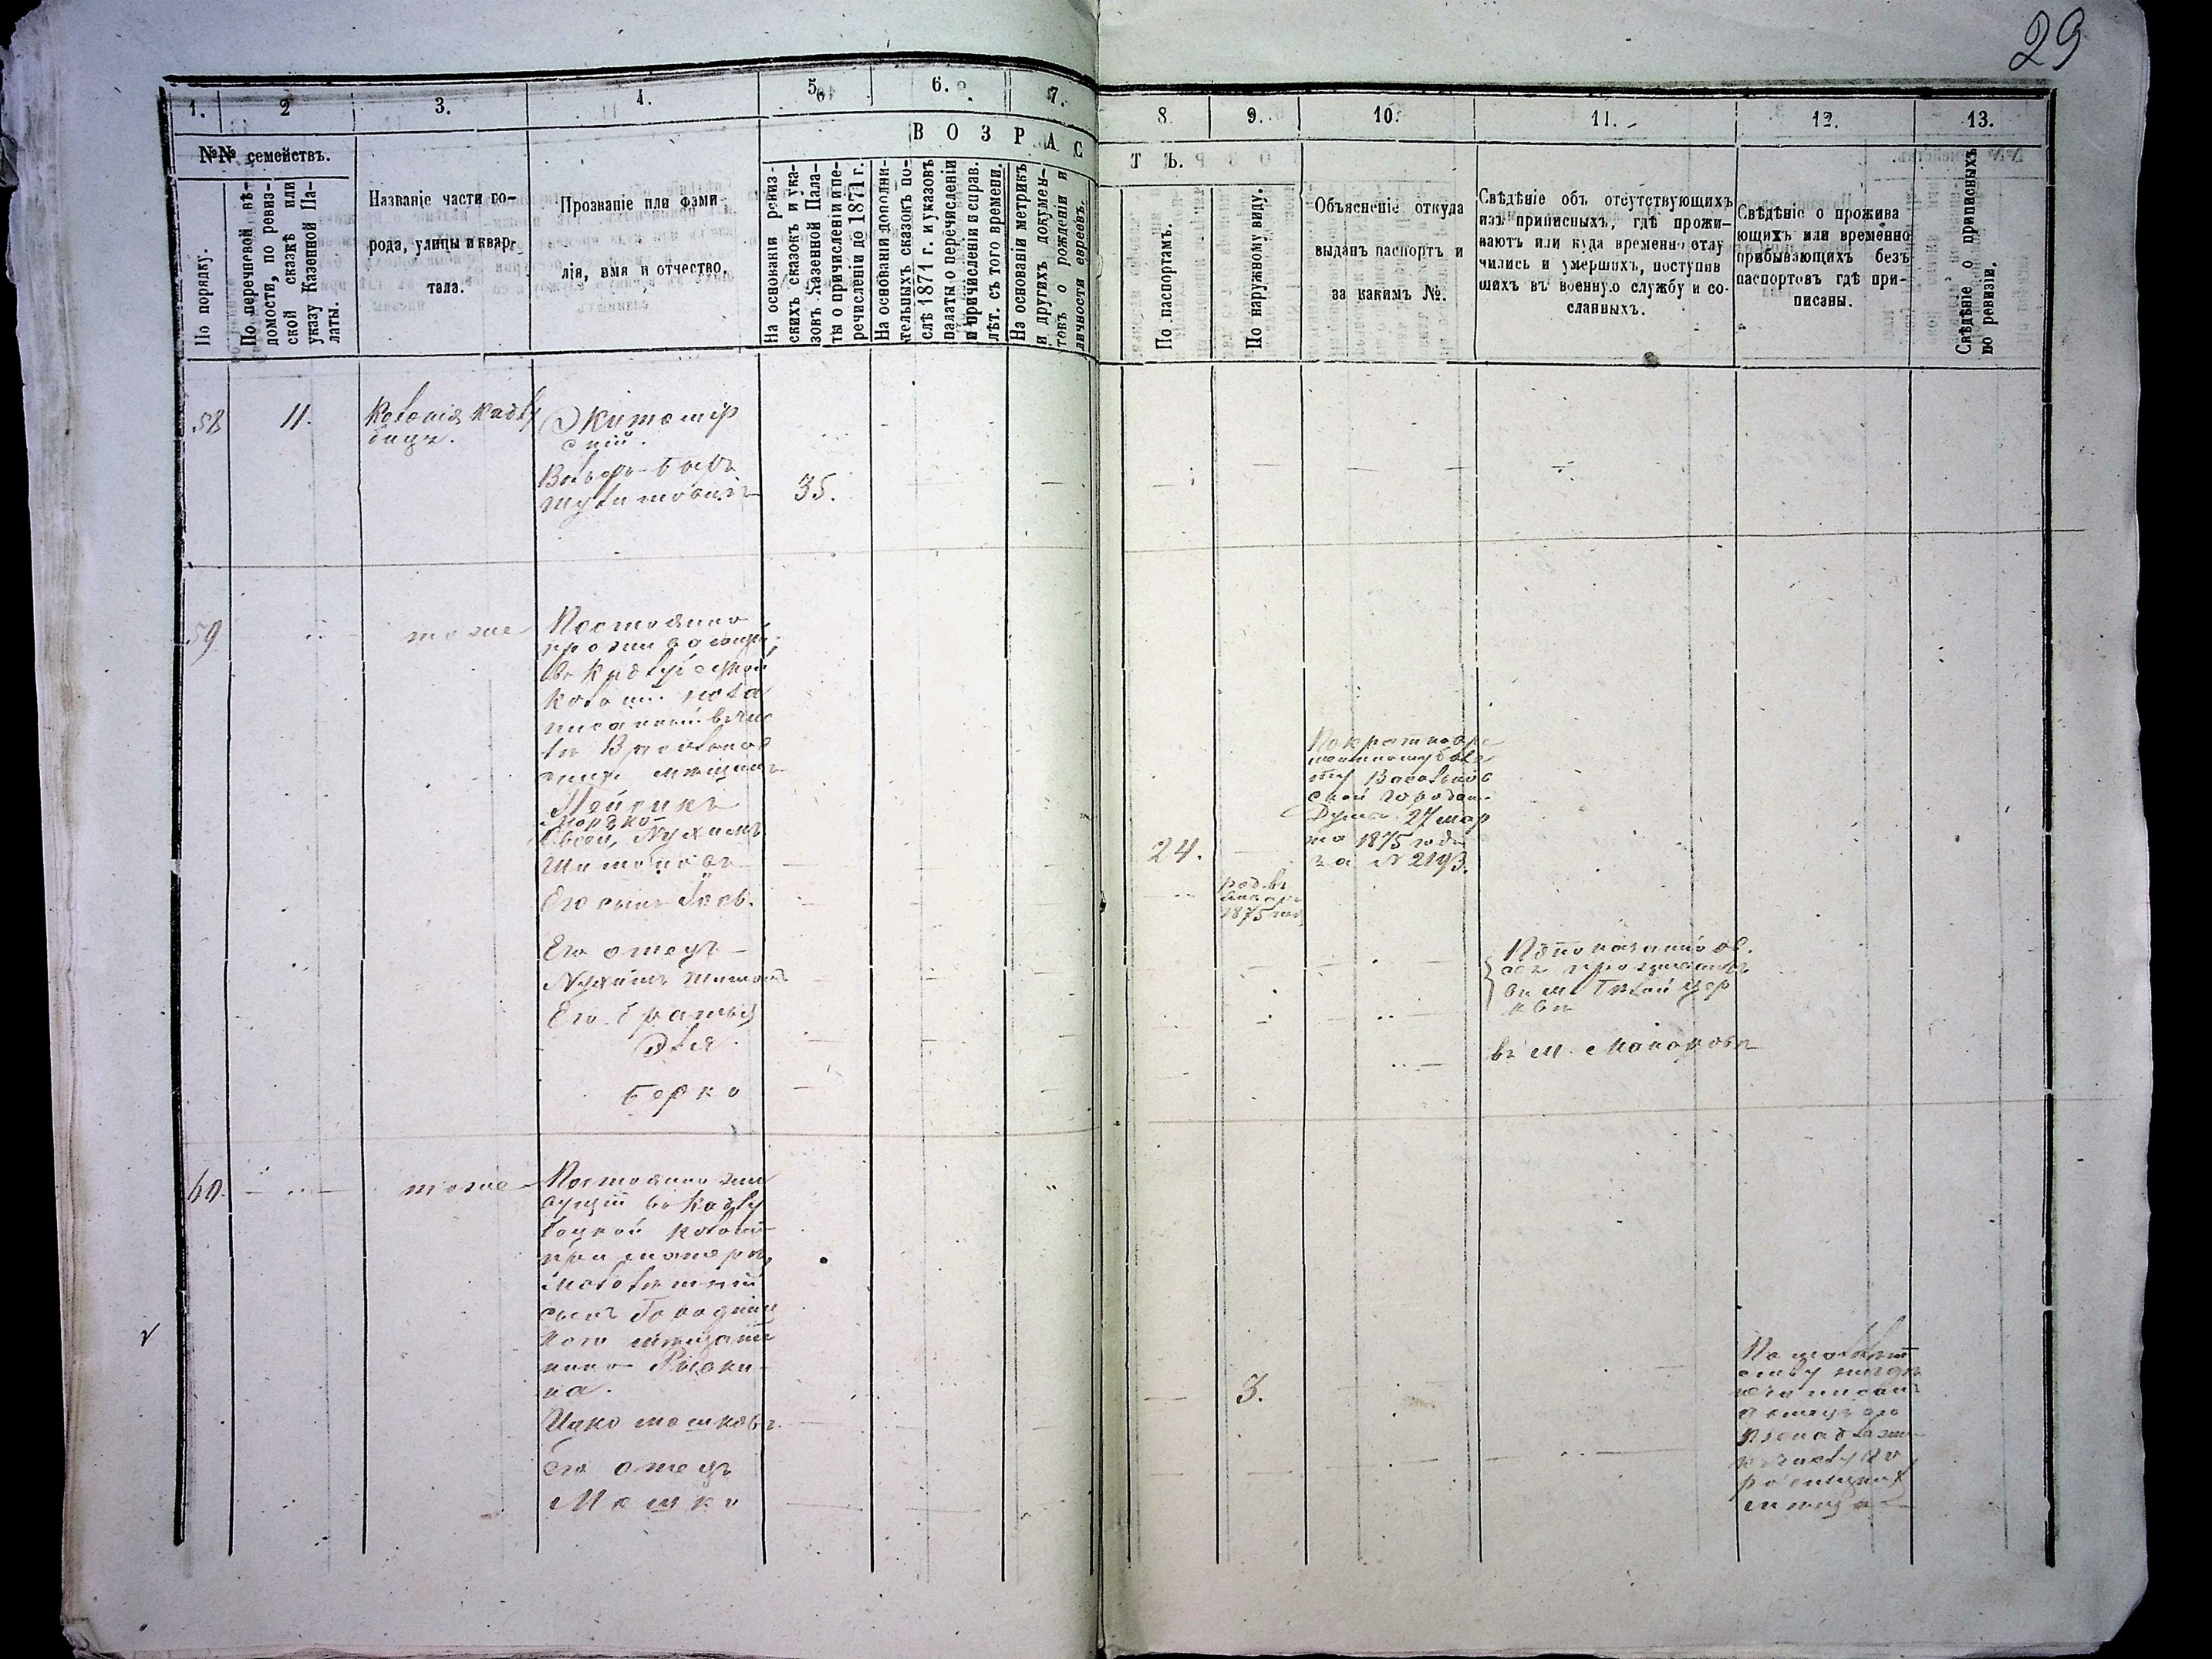 29
1. 2 3. 4. 5. 6. 7. 8. 9. 10. 11. 12. 13.
ВОЗРАСТЪ.
№№ семействъ.
По порядку.
По перечневой вѣ-
домости, по ревиз-
ской сказкѣ или
указу Казенной Па-
латы.
Названіе части го-
рода, улицы и квар-
тала.
Прозваніе или фами-
лія, имя и отчество.
На основаніи ревиз-
скихъ сказокъ и ука-
зовъ Казенной Пала-
ты о причисленіи и пе-
речисленіи до 1871 г.
На основаніи дополни-
тельныхъ сказокъ по-
слѣ 1871 г. и указовъ
палаты о перечисленіи
и причисленіи и справ.
лѣт. съ того времени.
На основаніи метрикъ
и другихъ докумен-
товъ о рожденіи и
личности евреевъ.
По паспортамъ.
По наружному виду.
Объясненіе откуда
выданъ паспортъ и
за какимъ №.
Свѣдѣніе объ отсутствующихъ
изъ приписныхъ, гдѣ прожи-
ваютъ или куда временно отлу
чились и умершихъ, поступив
шихъ въ военную службу и со-
сланныхъ.
Свѣдѣніе о прожива
ющихъ или временно
прибывающихъ безъ
паспортовъ гдѣ при-
писаны.
Свѣдѣніе о приписныхъ
по ревизіи.
58 11. Колонія Кадлу
бица.
Житомір
скій.
Вольфъ-Беръ
Шулимовичъ 35.
59 тоже Постоянно
въ Кадлубецкой
мѣщанъ
Пейсикъ
Мордко
Овсей, Нухимъ
Шимоновъ 24.
Пократковре
менному биле
ту Васильков
ской городской
Думы 27 мар
та 1875 года
за № 2193.
Его сынъ Іось. род. въ
январѣ
1875 года
Его отецъ
Нухимъ Шимон
Его братья
Эля.
Берко
въ м. Бѣлой Цер
кви
въ м. Макаровѣ
60. тоже Постоянно жив
ущій въ Кадлу
бецкой колоніи
при матери,
малолѣтній
сынъ Городниц
каго мѣщани
на.
Ицко Мошковъ 3.
Его отецъ
Мошко
По малолѣт
ству нигдѣ
не записанъ
а отецъ его